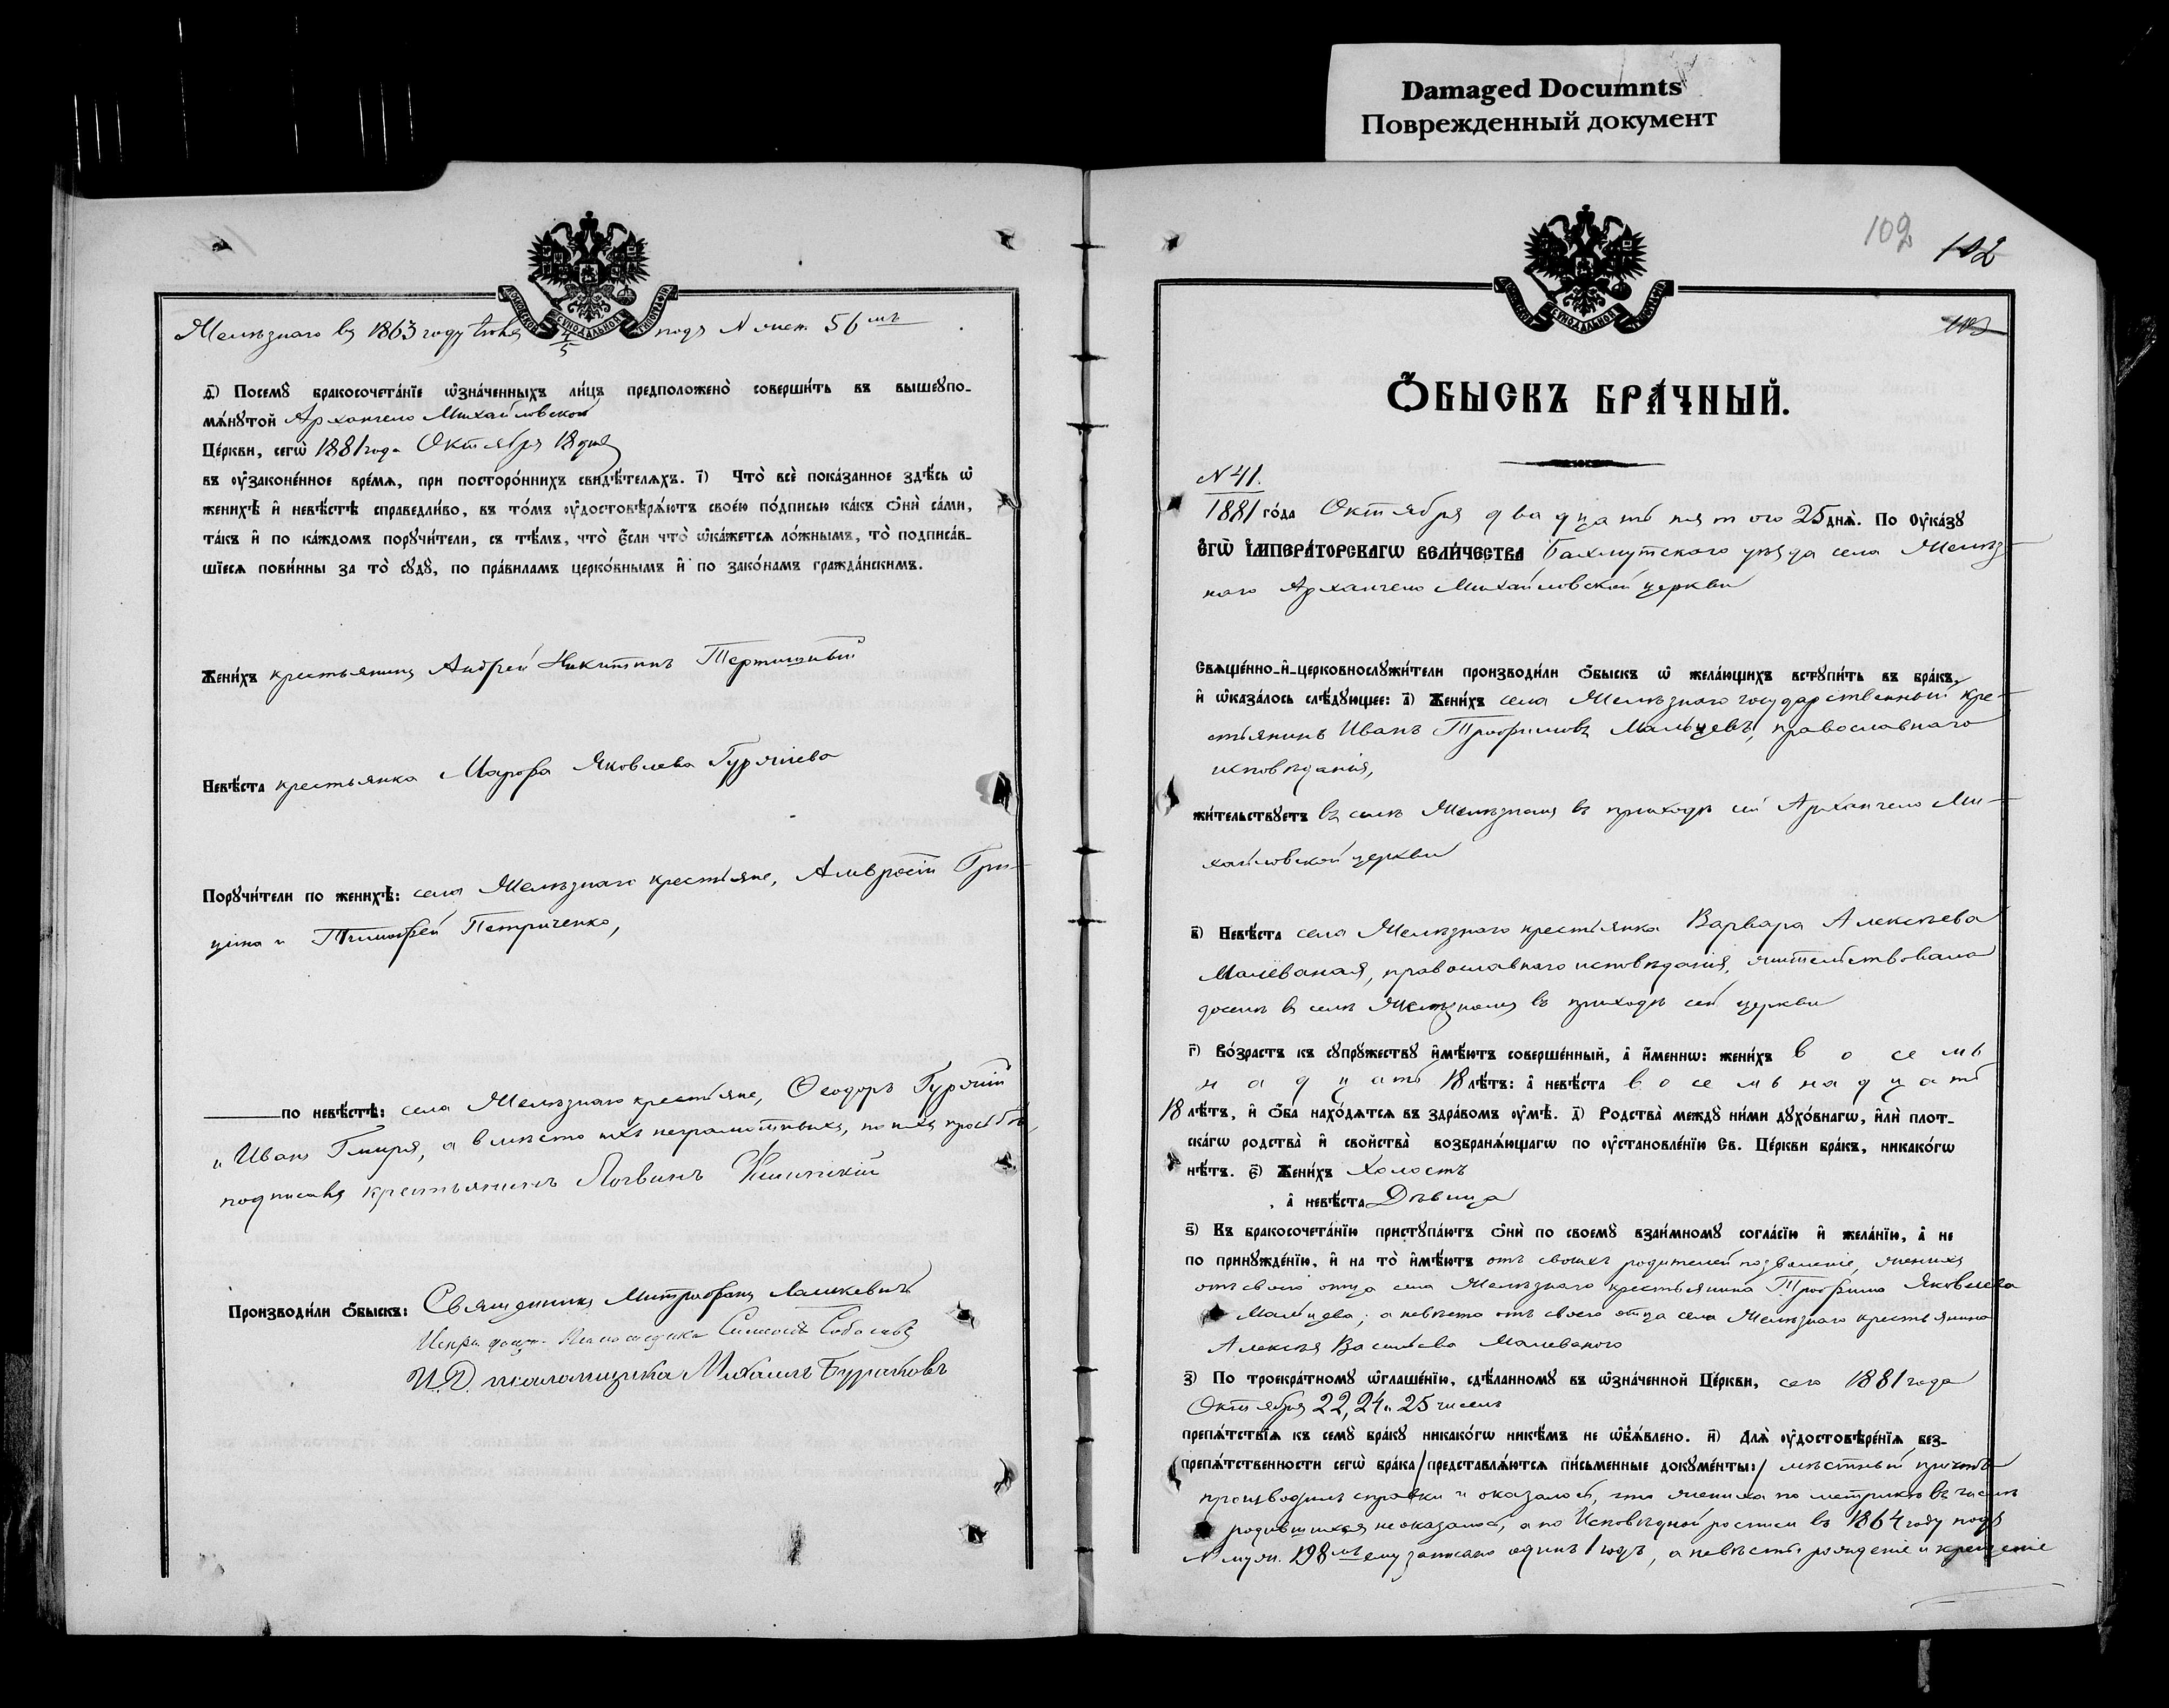 Damaged Documnts
Поврежденный документ
Желѣзнаго въ 1863 году Іюня 4/5 подъ N жен. 56мъ
д҃) Посемꙋ бракосочета́нїе ѡ҆зна́ченныхъ ли́цъ предположено̀ соверши́ть въ вышеꙋпо-
мѧ́нꙋтой Архангело Михайловской
Це́ркви, сегѡ̀ 1881 года Октября 18 дня
въ ᲂу҆законе́нное вре́мѧ, при посторо́ннихъ свидѣ́телѧхъ. і҃) Что̀ всѐ пока́занное здѣ́сь ѡ҆
женихѣ̀ и҆ невѣ́стѣ справедли́во, въ то́мъ ᲂу҆достовѣрѧ́ютъ свое́ю по́дписью ка́къ ѻ҆нѝ са́ми,
та́къ и҆ по ка́ждомъ порꙋчи́тели, съ тѣ́мъ, что̀ є҆́сли что̀ ѡ҆ка́жетсѧ ло́жнымъ, то̀ подписа́в-
шїесѧ пови́нны за то̀ сꙋдꙋ̀, по пра́виламъ церко́внымъ и҆ по зако́намъ гражда́нскимъ.
Жени́хъ крестьянинъ Андрей Никитинъ Тертышный
Невѣ́ста крестьянка Марфа Яковлева Гурячіева
Порꙋчи́тели по женихѣ̀: села Желѣзнаго крестьяне, Амвросій Гри-
цына и Тимофей Петриченко,
по невѣ́стѣ: села Желѣзнаго крестьяне, Ѳеодоръ Гурячій
и Иванъ Гмиря, а вмѣсто ихъ неграмотныхъ, по ихъ прозьбѣ,
подписался крестьянинъ Логвинъ
Производи́ли ѻ҆́быскъ: Священникъ Митрофанъ Лашкевичъ
Испр. долж. Псаломщика Симеонъ Соболевъ
И. Д. псаломщика Михаилъ Бурчаковъ
МОСКОВСКОЙ СѴНОДАЛЬНОЙ ТИПОГРАФІИ
102 102
МОСКОВСКОЙ СѴНОДАЛЬНОЙ ТИПОГРАФІИ
Ѻ҆́БЫСКЪ БРА́ЧНЫЙ.
N 41.
1881 го́да Октября двадцать пятого 25 днѧ̀. По ᲂу҆ка́зꙋ
Є҆ГѠ̀ І҆МПЕРА́ТОРСКАГѠ ВЕЛИ́ЧЕСТВА Бахмутского уѣзда села Желѣз-
наго Архангело Михайловской церкви
Свѧще́нно-и҆-церковнослꙋжи́тели производи́ли ѻ҆́быскъ ѡ҆ жела́ющихъ встꙋпи́ть въ бра́къ,
и҆ ѡ҆каза́лось слѣ́дꙋющее: а҃) Жени́хъ села Желѣзнаго государственный кре-
стьянинъ Иванъ Трофимовъ Мальцевъ, православнаго
исповѣданія,
жи́тельствꙋетъ въ селѣ Желѣзномъ въ приходѣ сей Архангело Ми-
хайловской церкви
в҃) Невѣ́ста села Желѣзнаго крестьянка Варвара Алексѣева
Малёваная, православнаго исповѣданія, жительствовала
доселѣ въ селѣ Желѣзномъ въ приходѣ сей церкви
г҃) Во́зрастъ къ сꙋпрꙋ́жествꙋ и҆мѣ́ютъ соверше́нный, а҆ и҆́меннѡ: жени́хъ восемь
надцать 18 лѣ́тъ: а҆ невѣ́ста восемьнадцать
18 лѣ́тъ, и҆ ѻ҆́ба нахо́дѧтсѧ въ здра́вомъ ᲂу҆мѣ̀. д҃) Родства̀ междꙋ̀ ни́ми дꙋхо́внагѡ, и҆лѝ плот-
ска́гѡ родства̀ и҆ сво́йства̀ возбранѧ́ющагѡ по ᲂу҆становле́нїю Св. Це́ркви бра́къ, никако́гѡ
нѣ́тъ. є҃) Жени́хъ Холостъ
, а҆ невѣ́ста Дѣвица
ѕ҃) Къ бракосочета́нїю пристꙋпа́ютъ ѻ҆нѝ по своемꙋ̀ взаи́мномꙋ согла́сїю и҆ жела́нїю, а҆ не
по принꙋжде́нїю, и҆ на то̀ и҆мѣ́ютъ отъ своихъ родителей позволеніе, женихъ
отъ своего отца села Желѣзнаго крестьянина Трофима Яковлева
Мальцева; а невѣста отъ своего отца села Желѣзнаго крестьянина
Алексѣя Васильева Малеванаго
з҃) По троекра́тномꙋ ѡ҆глаше́нїю, сдѣ́ланномꙋ въ ѡ҆зна́ченной Це́ркви, сего 1881 года
Октября 22, 24 и 25 чиселъ
препѧ́тствїѧ къ семꙋ̀ бра́кꙋ никако́гѡ никѣ́мъ не ѡ҆б̾ѧ́влено. и҃) Длѧ̀ ᲂу҆достовѣре́нїѧ без-
препѧ́тственности сегѡ̀ бра́ка/представлѧ́ютсѧ пи́сьменные докꙋме́нты:/ мѣстный причтъ
производилъ справки и оказалось, что жениха по метрикѣ въ числѣ
родившихся не оказалось, а по Исповѣдной росписи въ 1864 году подъ
N муж. 198мъ ему записано одинъ 1 годъ, а невѣсты рожденіе и крещеніе